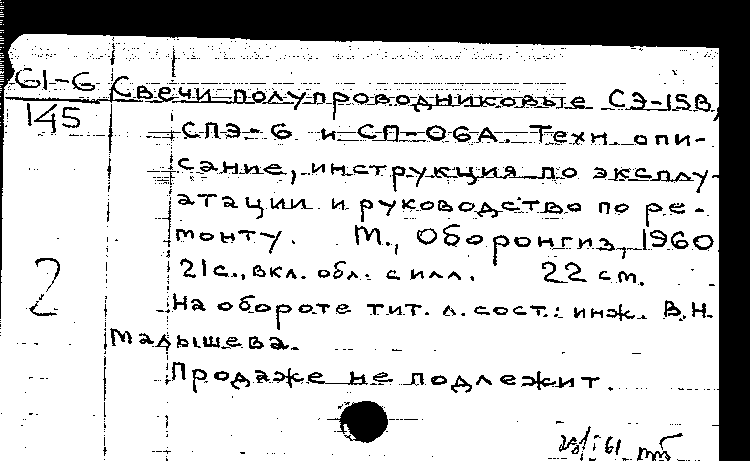 61-6
145
Свечи полупроводниковые СЭ-15В,
СПЭ-6 и СП-06А. Техн. опи-
сание, инструкция по эксплу-
атации и руководство по ре-
монту. М., Оборонгиз, 1960
21с., вкл. обл. с илл. 22 см.
2
На обороте тит. л. сост.: инж. В.Н.
Малышева.
Продаже не подлежит.
61